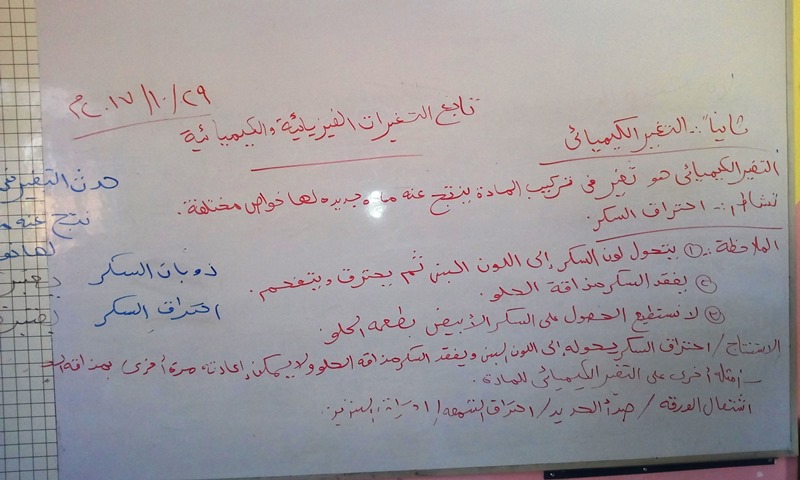 ٢٩/١٠/٢٠١٧م
تابع التغيرات الفيزيائية والكيميائية
ثانياً :- التغير الكيميائي
التغير الكيميائي هو تغير في تركيب المادة ينتج عنه مادة جديدة لها خواص مختلفة .
نشاط :- احتراق السكر
الملاحظة :- ① يتحول لون السكر إلى اللون البني ثم يحترق ويتفحم .
② يفقد السكر مذاقه الحلو .
③ لا نستطيع الحصول على السكر الأبيض بطعمه الحلو .
الاستنتاج / احتراق السكر يحوله إلى اللون البني ويفقد السكر مذاقه الحلو ولا يمكن إعادته مرة أخرى بمذاقه
- أمثلة أخرى على التغير الكيميائي للمادة .
اشتعال الورقة / صدأ الحديد / احتراق الشمعة / البنزين
حدث التغير في
نتج عنه
ذوبان السكر
احتراق السكر